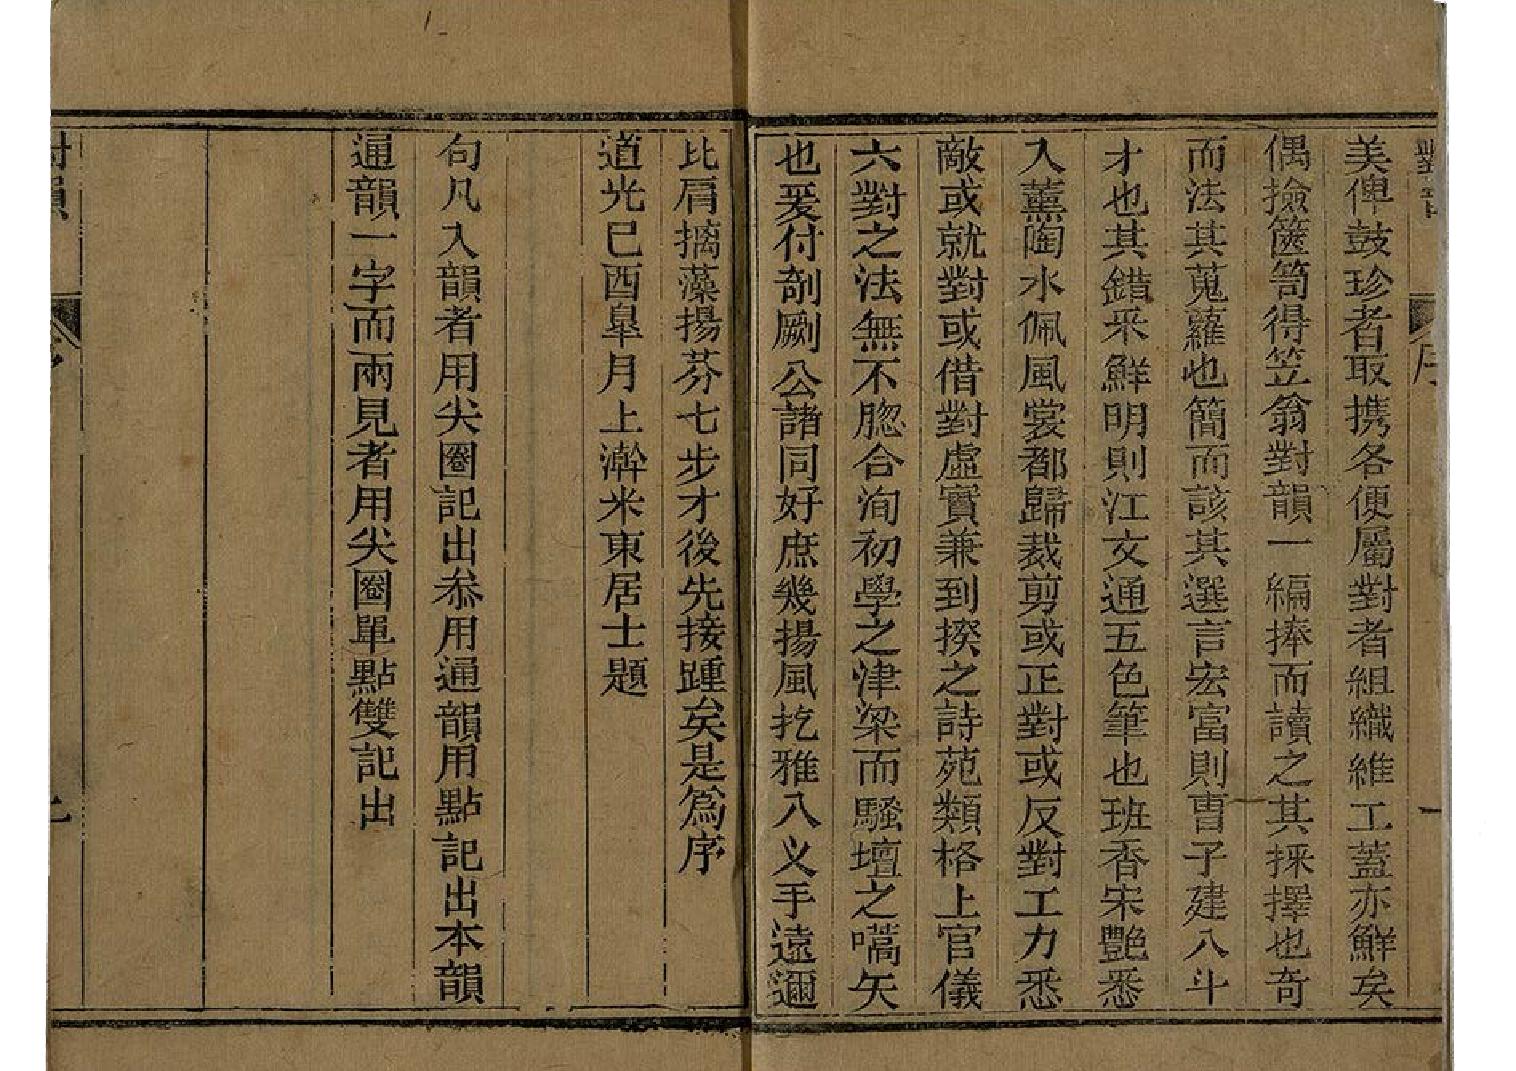 美俾鼓珍者取携各便屬對者組織維工蓋亦鮮矣
偶撿篋笥得笠翁對韻一編捧而讀之其採擇也奇
而法其蒐蘿也簡而該其選言宏富則曹子建八斗
才也其錯采鮮明則江文通五色筆也班香宋艷悉
入薰陶水佩風裳都歸裁剪或正對或反對工力悉
敵或就對或借對虛實兼到揆之詩苑類格上官儀
六對之法無不脗合洵初學之津梁而騷壇之嚆矢
也爰付剞劂公諸同好庶幾揚風扢雅八义手遠邇
比肩摛藻揚芬七步才後先接踵矣是爲序
道光已酉皐月上澣米東居士題
句凡入韻者用尖圈記出叅用通韻用點記出本韻
通韻一字而兩見者用尖圈單點雙記出
對韻